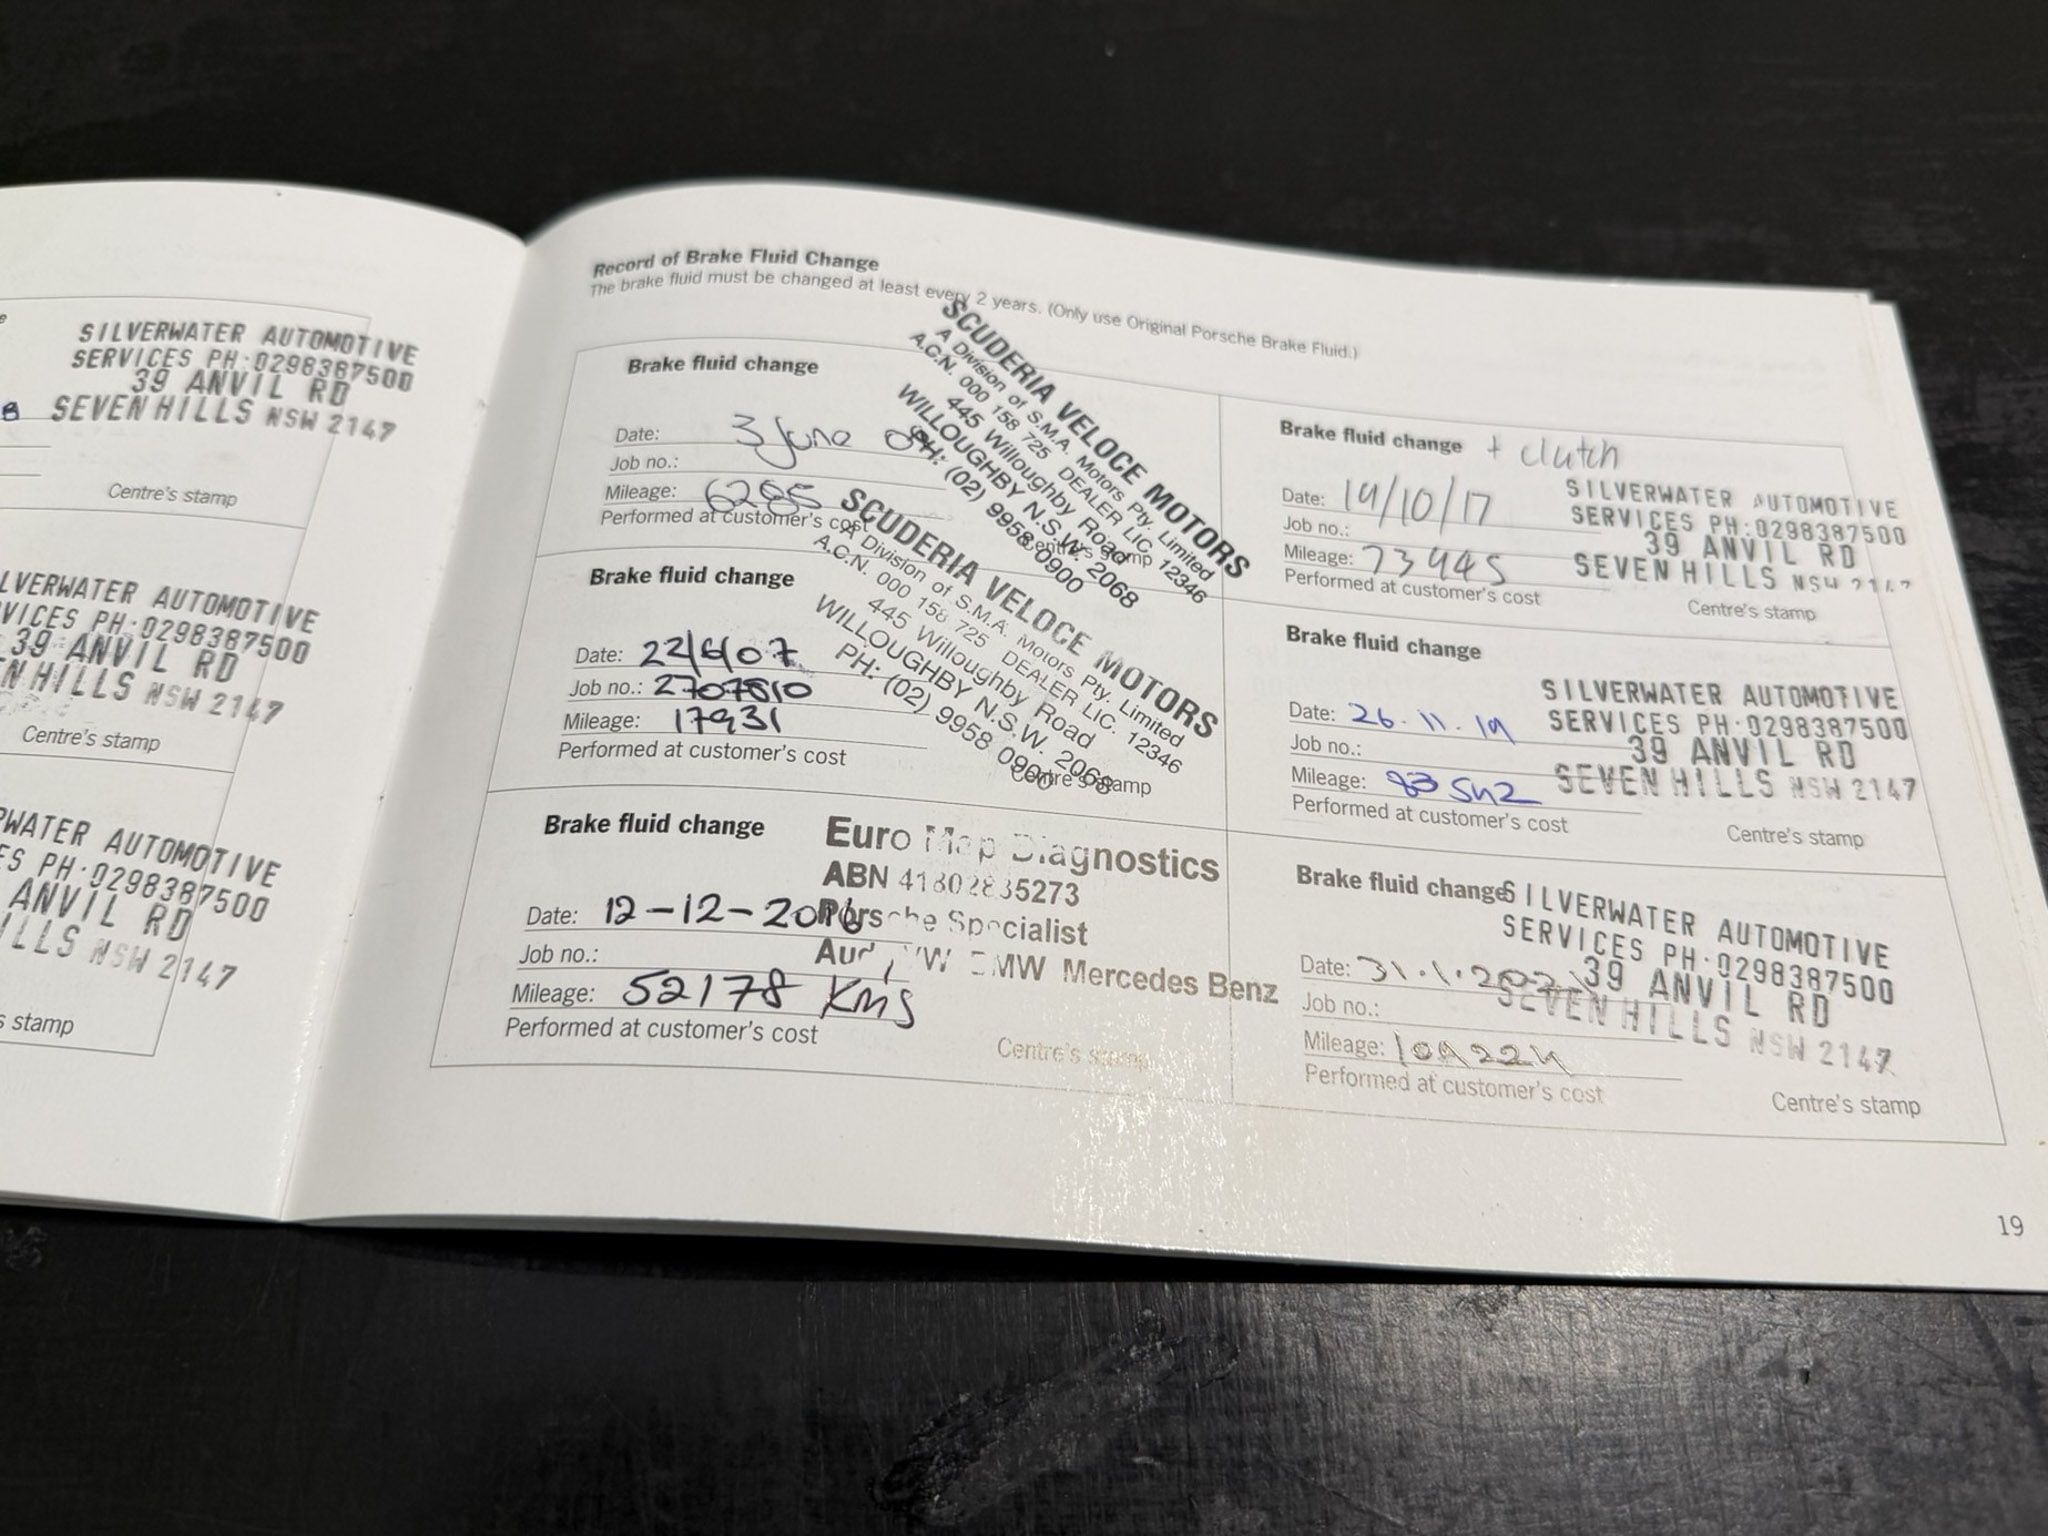 SILVERWATER AUTOMOTIVE
SERVICES PH:0298387500
39 ANVIL RD
SEVEN HILLS NSW 2147
Centre's stamp
LVERWATER AUTOMOTIVE
VICES PH:0298387500
39 ANVIL RD
EN HILLS NSW 2147
Centre's stamp
WATER AUTOMOTIVE
ES PH:0298387500
ANVIL RD
ILLS NSW 2147
s stamp
Record of Brake Fluid Change
The brake fluid must be changed at least every 2 years. (Only use Original Porsche Brake Fluid.)
Brake fluid change
Date: 3 June
Job no.:
Mileage: 6285
Performed at customer's cost
SCUDERIA VELOCE MOTORS
A Division of S.M.A. Motors Pty. Limited
A.C.N. 000 158 725 DEALER LIC. 12346
445 Willoughby Road
WILLOUGHBY N.S.W. 2068
PH: (02) 9958 0900
Centre's stamp
Brake fluid change
Date: 22/6/07
Job no.: 2707810
Mileage: 17931
Performed at customer's cost
SCUDERIA VELOCE MOTORS
A Division of S.M.A. Motors Pty. Limited
A.C.N. 000 158 725 DEALER LIC. 12346
445 Willoughby Road
WILLOUGHBY N.S.W. 2068
PH: (02) 9958 0900
Centre's stamp
Brake fluid change
Date: 12-12-2016
Job no.:
Mileage: 52178 Kms
Performed at customer's cost
Euro Map Diagnostics
ABN 41802835273
Porsche Specialist
Audi VW BMW Mercedes Benz
Centre's stamp
Brake fluid change + clutch
Date: 19/10/17
Job no.:
Mileage: 73445
Performed at customer's cost
SILVERWATER AUTOMOTIVE
SERVICES PH:0298387500
39 ANVIL RD
SEVEN HILLS NSW 2147
Centre's stamp
Brake fluid change
Date: 26.11.19
Job no.:
Mileage: 93542
Performed at customer's cost
SILVERWATER AUTOMOTIVE
SERVICES PH:0298387500
39 ANVIL RD
SEVEN HILLS NSW 2147
Centre's stamp
Brake fluid change
Date: 31.1.2022
Job no.:
Mileage: 109224
Performed at customer's cost
SILVERWATER AUTOMOTIVE
SERVICES PH:0298387500
39 ANVIL RD
SEVEN HILLS NSW 2147
Centre's stamp
19